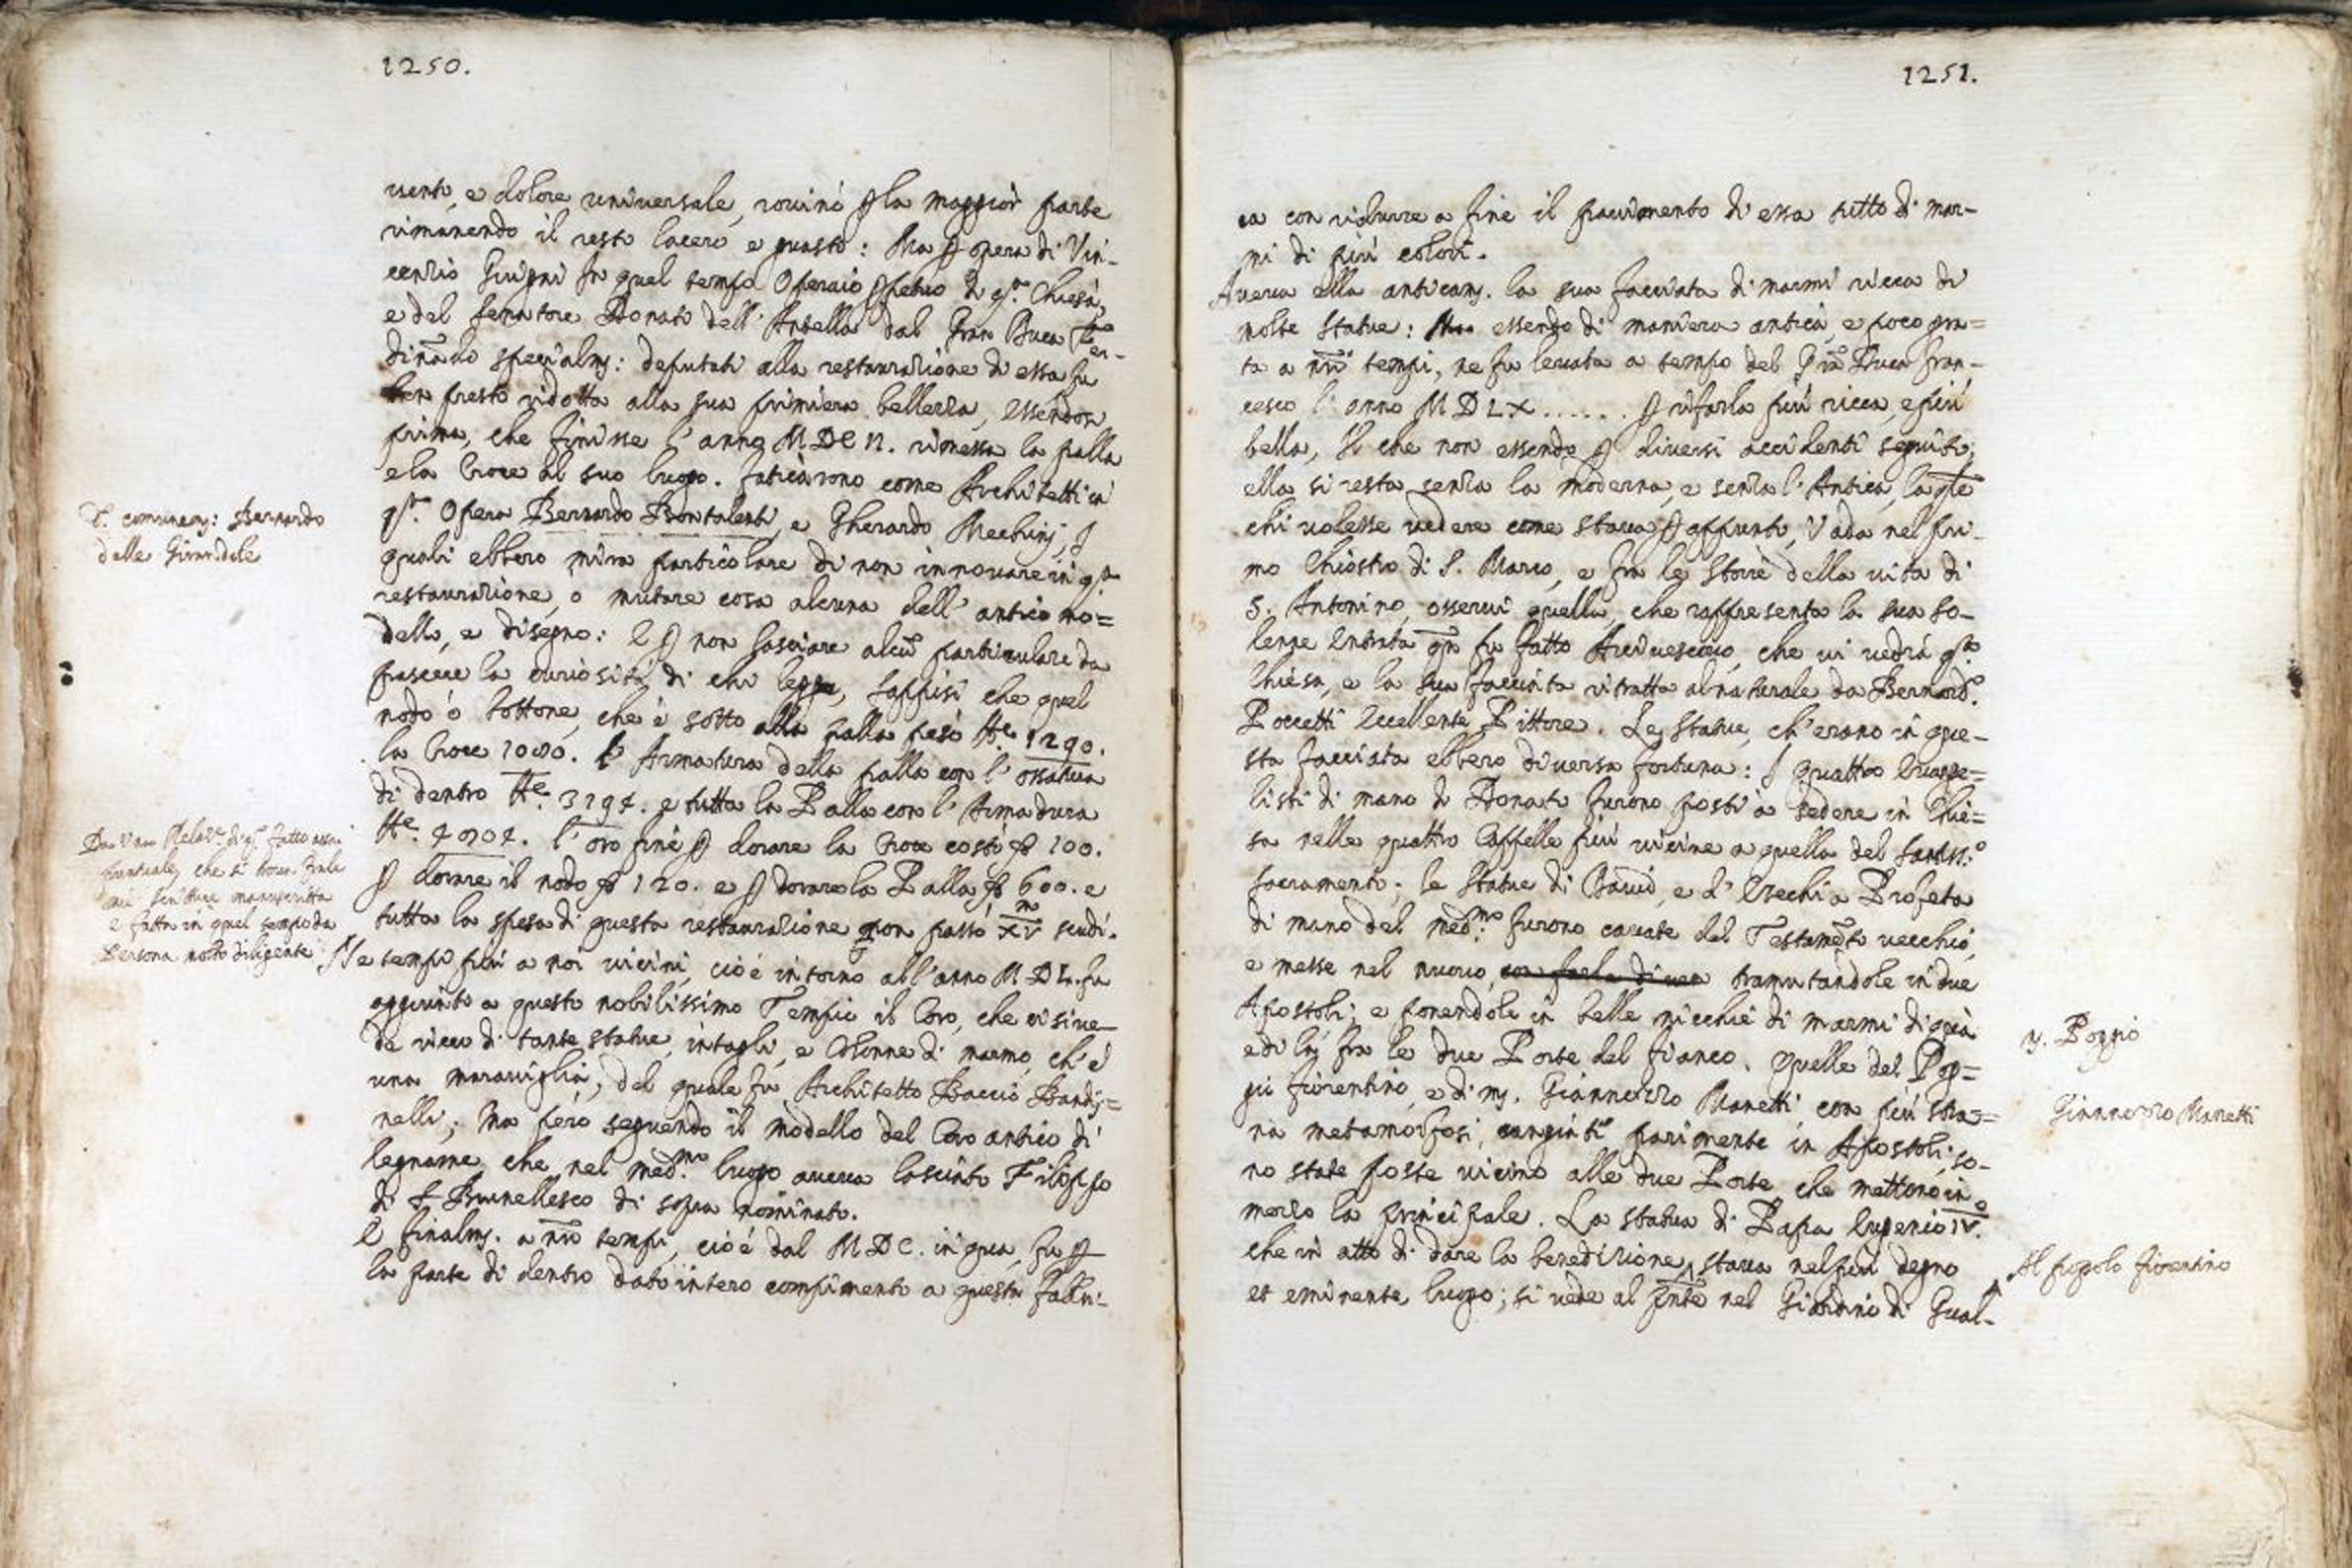 1250.
vento, e dolore universale, rovinò p la maggior parte
rimanendo il resto lacero e guasto: Ma p opera di Vin-
cenzio Giugni in quel tempo Operaio ppetuo di qta. Chiesa,
e del Senatore Donato dell' Antella dal Gran Duca Fer-
dinando specialmte: deputati alla restaurazione di essa fu
ben presto ridotta alla sua primiera bellezza, essendosi
prima, che finisse l' anno M.DC II. rimessa la palla
e la Croce al suo luogo. Faticarono come Architetti in
qta. Opera Bernardo Bontalenti, e Gherardo Mechinj, I
quali ebbero mira particolare di non innovare in qta
restaurazione, o mutare cosa alcuna dell' antico mo=
dello, e disegno: E p non lasciare alcū particulare da
pascere la curiosità di chi legge, sappisi che quel
nodo ò bottone, che è sotto alla palla pesò lbe. 1290.
la Croce 1080. l' Armatura della palla con l' ossatura
di dentro lbe. 3194. e tutta la Palla con l' Armadura
lbe. 4 . l' oro fine p dorare la Croce costò 100.
p dorare il nodo 120. e p dorare la Palla 600. e
tutta la spesa di questa restaurazione non passò XV m scudi.
Ne tempi più a noi vicini, cioè intorno all' anno M.DL. fu
aggiunto a questo nobilissimo Tempio il Coro, che vi si ve-
de ricco di tante statue, intagli, e Colonne di marmo, ch' è
una maraviglia, del quale fu Architetto Baccio Bandi=
nelli; Ma però seguendo il modello del Coro antico di
legname, che nel medmo. luogo aveva lasciato Filippo
di S. Brunellesco di sopra nominato.
E finalmte. a nrī tempi, cioè dal M DC. in qua, fu p
la parte di dentro dato intero compimento a questa Fabbri-
D. comunemte: Bernardo
delle Girandole
Da Una Relae. di qto fatto assai
puntuale, che si trova fra le
mie scritture manuscritta
e fatta in quel tempo da
Persona molto diligente
1251.
ca con ridurre a fine il pavimento di essa tutto di mar-
mi di più colori.
Aveva ella anticamte. la sua facciata di marmi ricca di
molte statue: essendo di maniera antica, e poco gra=
ta a nrī tempi, ne fu levata a tempo del Grā Duca Fran-
cesco l' anno M D LX . . . . . . p rifarla più ricca, e più
bella, Il che non essendo p diversi accidenti seguito;
ella si resta senza la moderna, e senza l' Antica, la qle
chi volesse vedere come stava p appunto, Vada nel pri-
mo Chiostro di S. Marco, e fra le storie della vita di
S. Antonino, osservi quella, che rappresenta la sua so-
lenne Entrata qn̄ fu fatto Arcivescovo, che vi vedrà qta
Chiesa, e la sua facciata ritratta al naturale da Bernardo.
Poccetti Eccellente Pittore. Le Statue, ch' erano in que-
sta facciata ebbero diversa fortuna: I quattro Evange=
listi di mano di Donato furono posti a sedere in Chie=
sa nelle quattro Cappelle più vicine a quella del Santiss:o
Sacramento; le Statue di David, e d' Ezechia Profeta
di mano del medmo: furono cavate del Testamēto vecchio,
e messe nel nuovo, tramutandole in due
Apostoli; e ponendole in belle nicchie di marmi di quà
e di là fra le due Porte del fianco. Quelle del Pog=
gio fiorentino, e di m. Giannozzo Manetti con più stra=
na metamorfosi, cangiati parimente in Apostoli, so-
no state poste vicino alle due Porte che mettono in
mezzo la principale. La statua di Papa Eugenio IV.
che in atto di dare la benedizione stava nel più degno
et eminente luogo; si vede al pn̄te nel Giardino di Gual-
m. Poggio
Giannozzo Manetti
Al popolo fiorentino